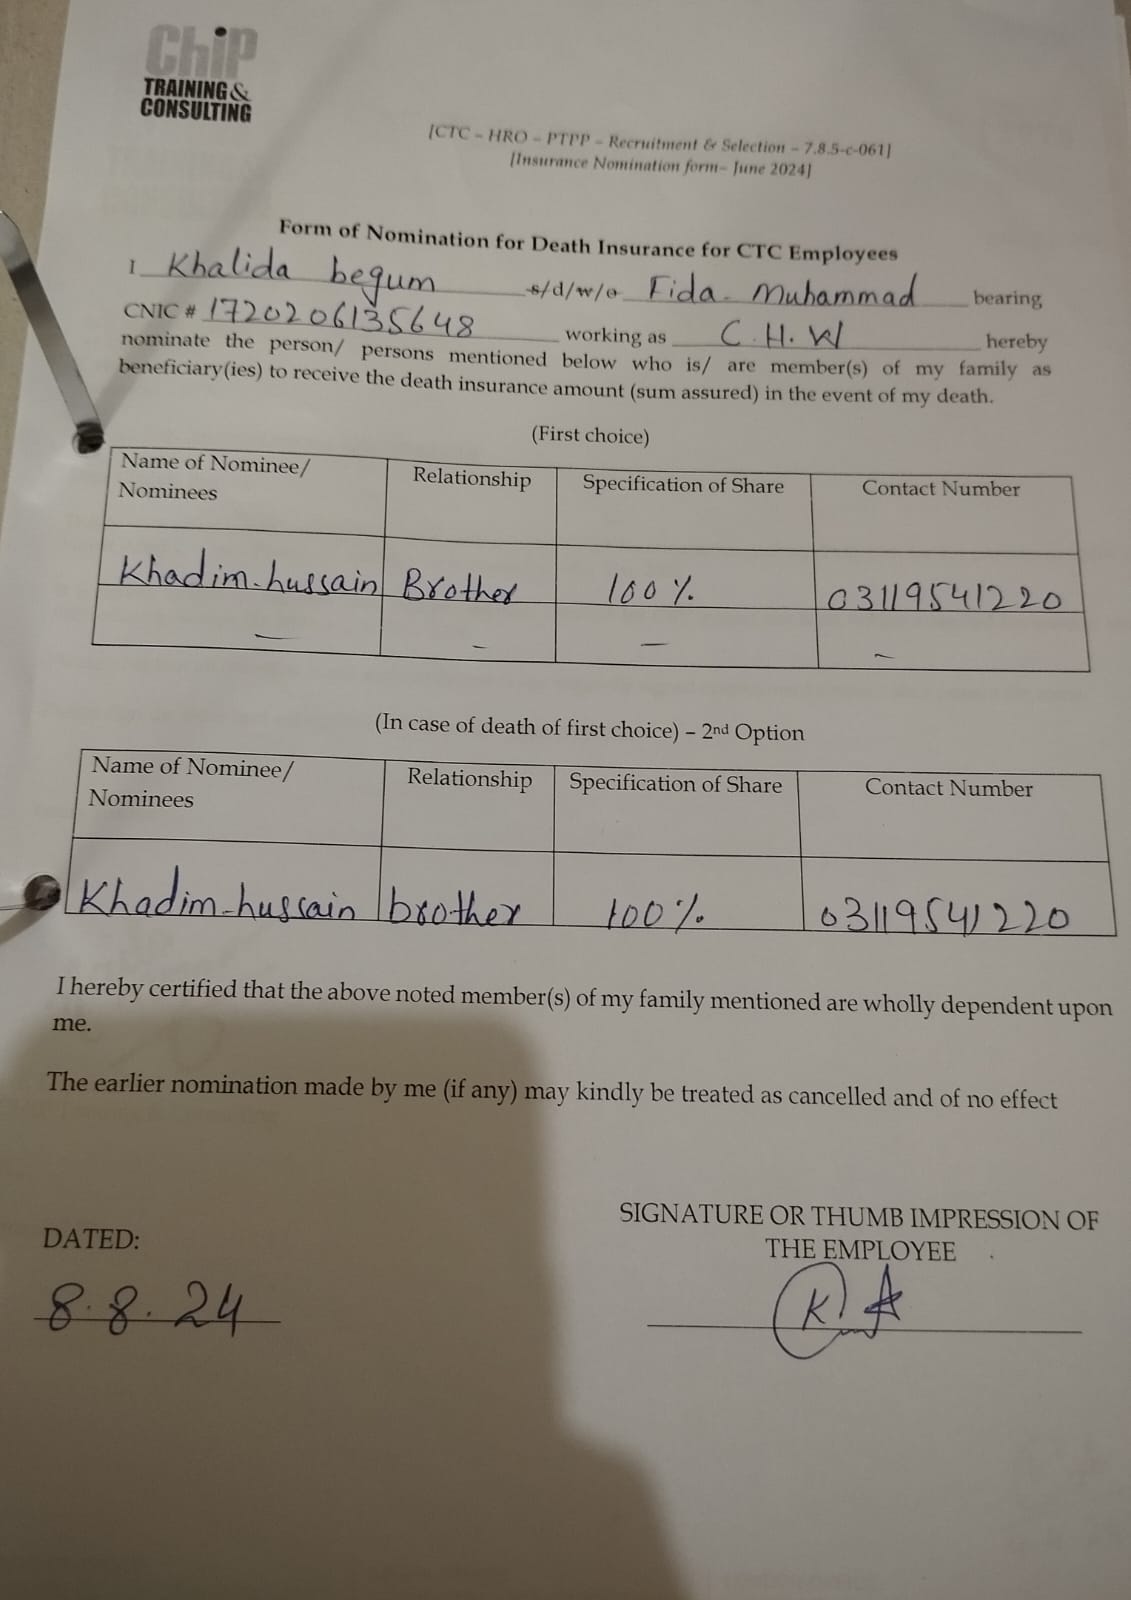 ChiP
TRAINING &
CONSULTING
[CTC – HRO – PTPP – Recruitment & Selection – 7.8.5-c-061]
[Insurance Nomination form– June 2024]
Form of Nomination for Death Insurance for CTC Employees
I Khalida begum s/d/w/o Fida Muhammad bearing
CNIC # 1720206135648 working as C.H.W hereby
nominate the person/ persons mentioned below who is/ are member(s) of my family as
beneficiary(ies) to receive the death insurance amount (sum assured) in the event of my death.
(First choice)
Name of Nominee/ Relationship Specification of Share Contact Number
Nominees
Khadim-hussain Brother 100% 03119541220
– – – –
(In case of death of first choice) – 2nd Option
Name of Nominee/ Relationship Specification of Share Contact Number
Nominees
Khadim-hussain brother 100% 03119541220
I hereby certified that the above noted member(s) of my family mentioned are wholly dependent upon
me.
The earlier nomination made by me (if any) may kindly be treated as cancelled and of no effect
SIGNATURE OR THUMB IMPRESSION OF
DATED: THE EMPLOYEE
8.8.24